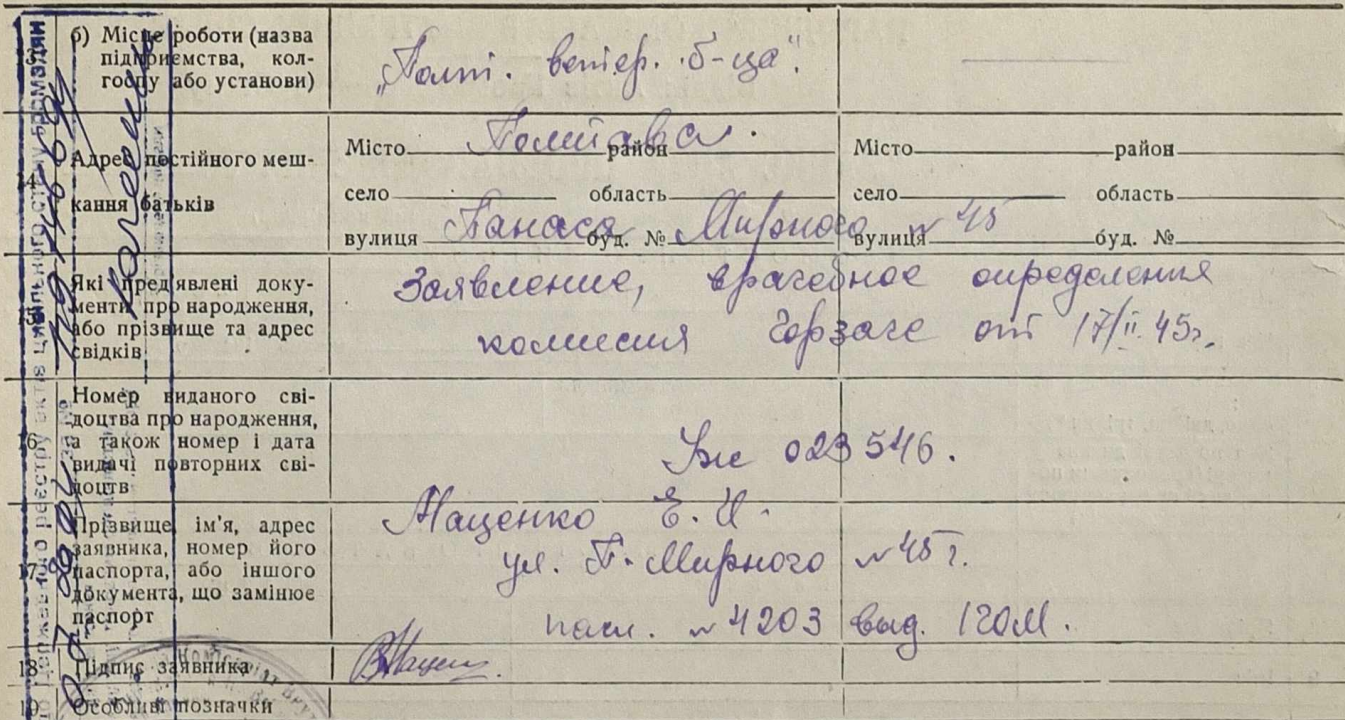 13. б) Місце роботи (назва
підприємства, кол-
госпу або установи)
"Полт. ветер. б-ца".
14. Адрес постійного меш-
кання батьків
Місто Полтава. район
село область
вулиця Панаса буд. № Мирного № 45
Місто район
село область
вулиця буд. №
15. Які пред'явлені доку-
менти про народження,
або прізвище та адрес
свідків
Заявление, врачебное определения
комиссия Горзагс от 17/II 45г.
16. Номер виданого сві-
доцтва про народження,
а також номер і дата
видачі повторних сві-
доцтв
023546.
17. Прізвище, ім'я, адрес
заявника, номер його
паспорта, або іншого
документа, що замінює
паспорт
Маценко Е. И.
ул. П. Мирного № 45
пасп. № 4203 выд. 1 ГОМ.
18. Підпис заявника
19. Особливі позначки